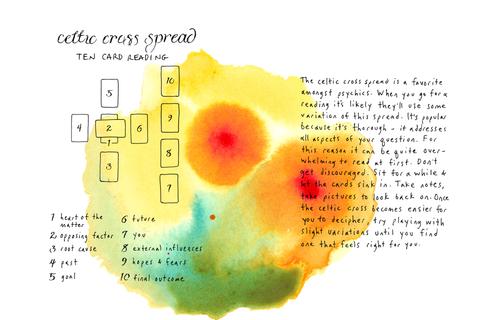 celtic cross spread
TEN CARD READING
5
4
2
6
1
3
10
9
8
7
The celtic cross spread is a favorite
amongst psychics. When you go for a
reading it's likely they'll use some
variation of this spread. It's popular
because it's thorough - it addresses
all aspects of your question. For
this reason it can be quite over-
whelming to read at first. Don't
get discouraged. Sit for a while &
let the cards sink in. Take notes,
take pictures to look back on. Once
the celtic cross becomes easier for
you to decipher, try playing with
slight variations until you find
one that feels right for you.
1 heart of the
matter
2 opposing factor
3 root cause
4 past
5 goal
6 future
7 you
8 external influences
9 hopes & fears
10 final outcome